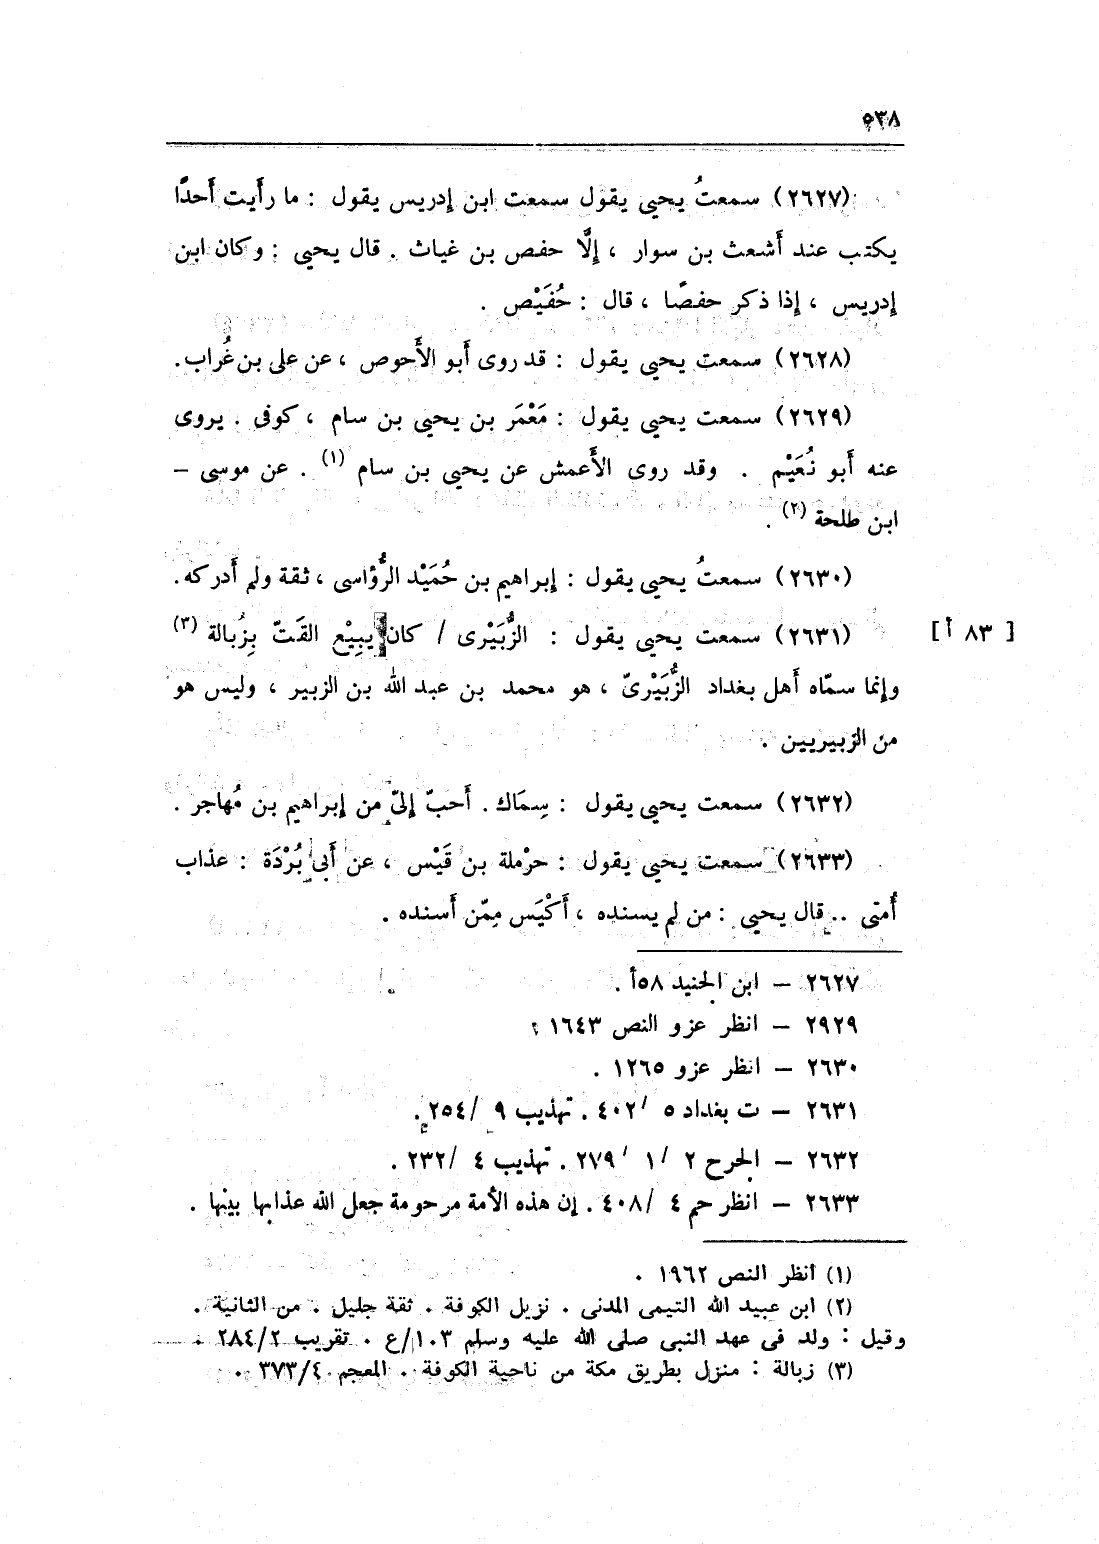 ٥٣٨
(٢٦٢٧) سمعتُ يحيى يقول سمعت ابن إدريس يقول : ما رأيت أحدًا
يكتب عند أشعث بن سوار ، إلَّا حفص بن غياث . قال يحيى : وكان ابن
إدريس ، إذا ذكر حفصًا ، قال : حُفَيْص .
(٢٦٢٨) سمعت يحيى يقول : قد روى أبو الأحوص ، عن على بن غُراب.
(٢٦٢٩) سمعت يحيى يقول : مَعْمَر بن يحيى بن سام ، كوفى . يروى
عنه أبو نُعَيْم . وقد روى الأعمش عن يحيى بن سام (١) . عن موسى –
ابن طلحة (٢) .
(٢٦٣٠) سمعتُ يحيى يقول : إبراهيم بن حُمَيْد الرُّؤاسى ، ثقة ولم أدركه.
(٢٦٣١) سمعت يحيى يقول : الزُّبَيْرى / كان يبيْع القَتّ بِزُبالة (٣) [ ٨٣ أ ]
وإنما سمّاه أهل بغداد الزُّبَيْرىّ ، هو محمد بن عبد الله بن الزبير ، وليس هو
من الزبيريين .
(٢٦٣٢) سمعت يحيى يقول : سِمَاك . أحبّ إلىّ من إبراهيم بن مُهاجر .
(٢٦٣٣) سمعت يحيى يقول : حرْملة بن قَيْس ، عن أبى بُرْدَة : عذاب
أُمتى .. قال يحيى : من لم يسنده ، أكْيَس مِمّن أسنده .
٢٦٢٧ – ابن الجنيد ٥٨أ .
٢٩٢٩ – انظر عزو النص ١٦٤٣ ؛
٢٦٣٠ – انظر عزو ١٢٦٥ .
٢٦٣١ – ت بغداد ٥ / ٤٠٢ . تهذيب ٩ / ٢٥٤ .
٢٦٣٢ – الجرح ٢ / ١ / ٢٧٩ . تهذيب ٤ / ٢٣٢ .
٢٦٣٣ – انظر حم ٤ / ٤٠٨ . إن هذه الأمة مرحومة جعل الله عذابها بينها .
(١) أنظر النص ١٩٦٢ .
(٢) ابن عبيد الله التيمى المدنى . نزيل الكوفة . ثقة جليل . من الثانية .
وقيل : ولد فى عهد النبى صلى الله عليه وسلم ١٠٣/ع . تقريب ٢٨٤/٢ .
(٣) زبالة : منزل بطريق مكة من ناحية الكوفة . المعجم ٣٧٣/٤ .